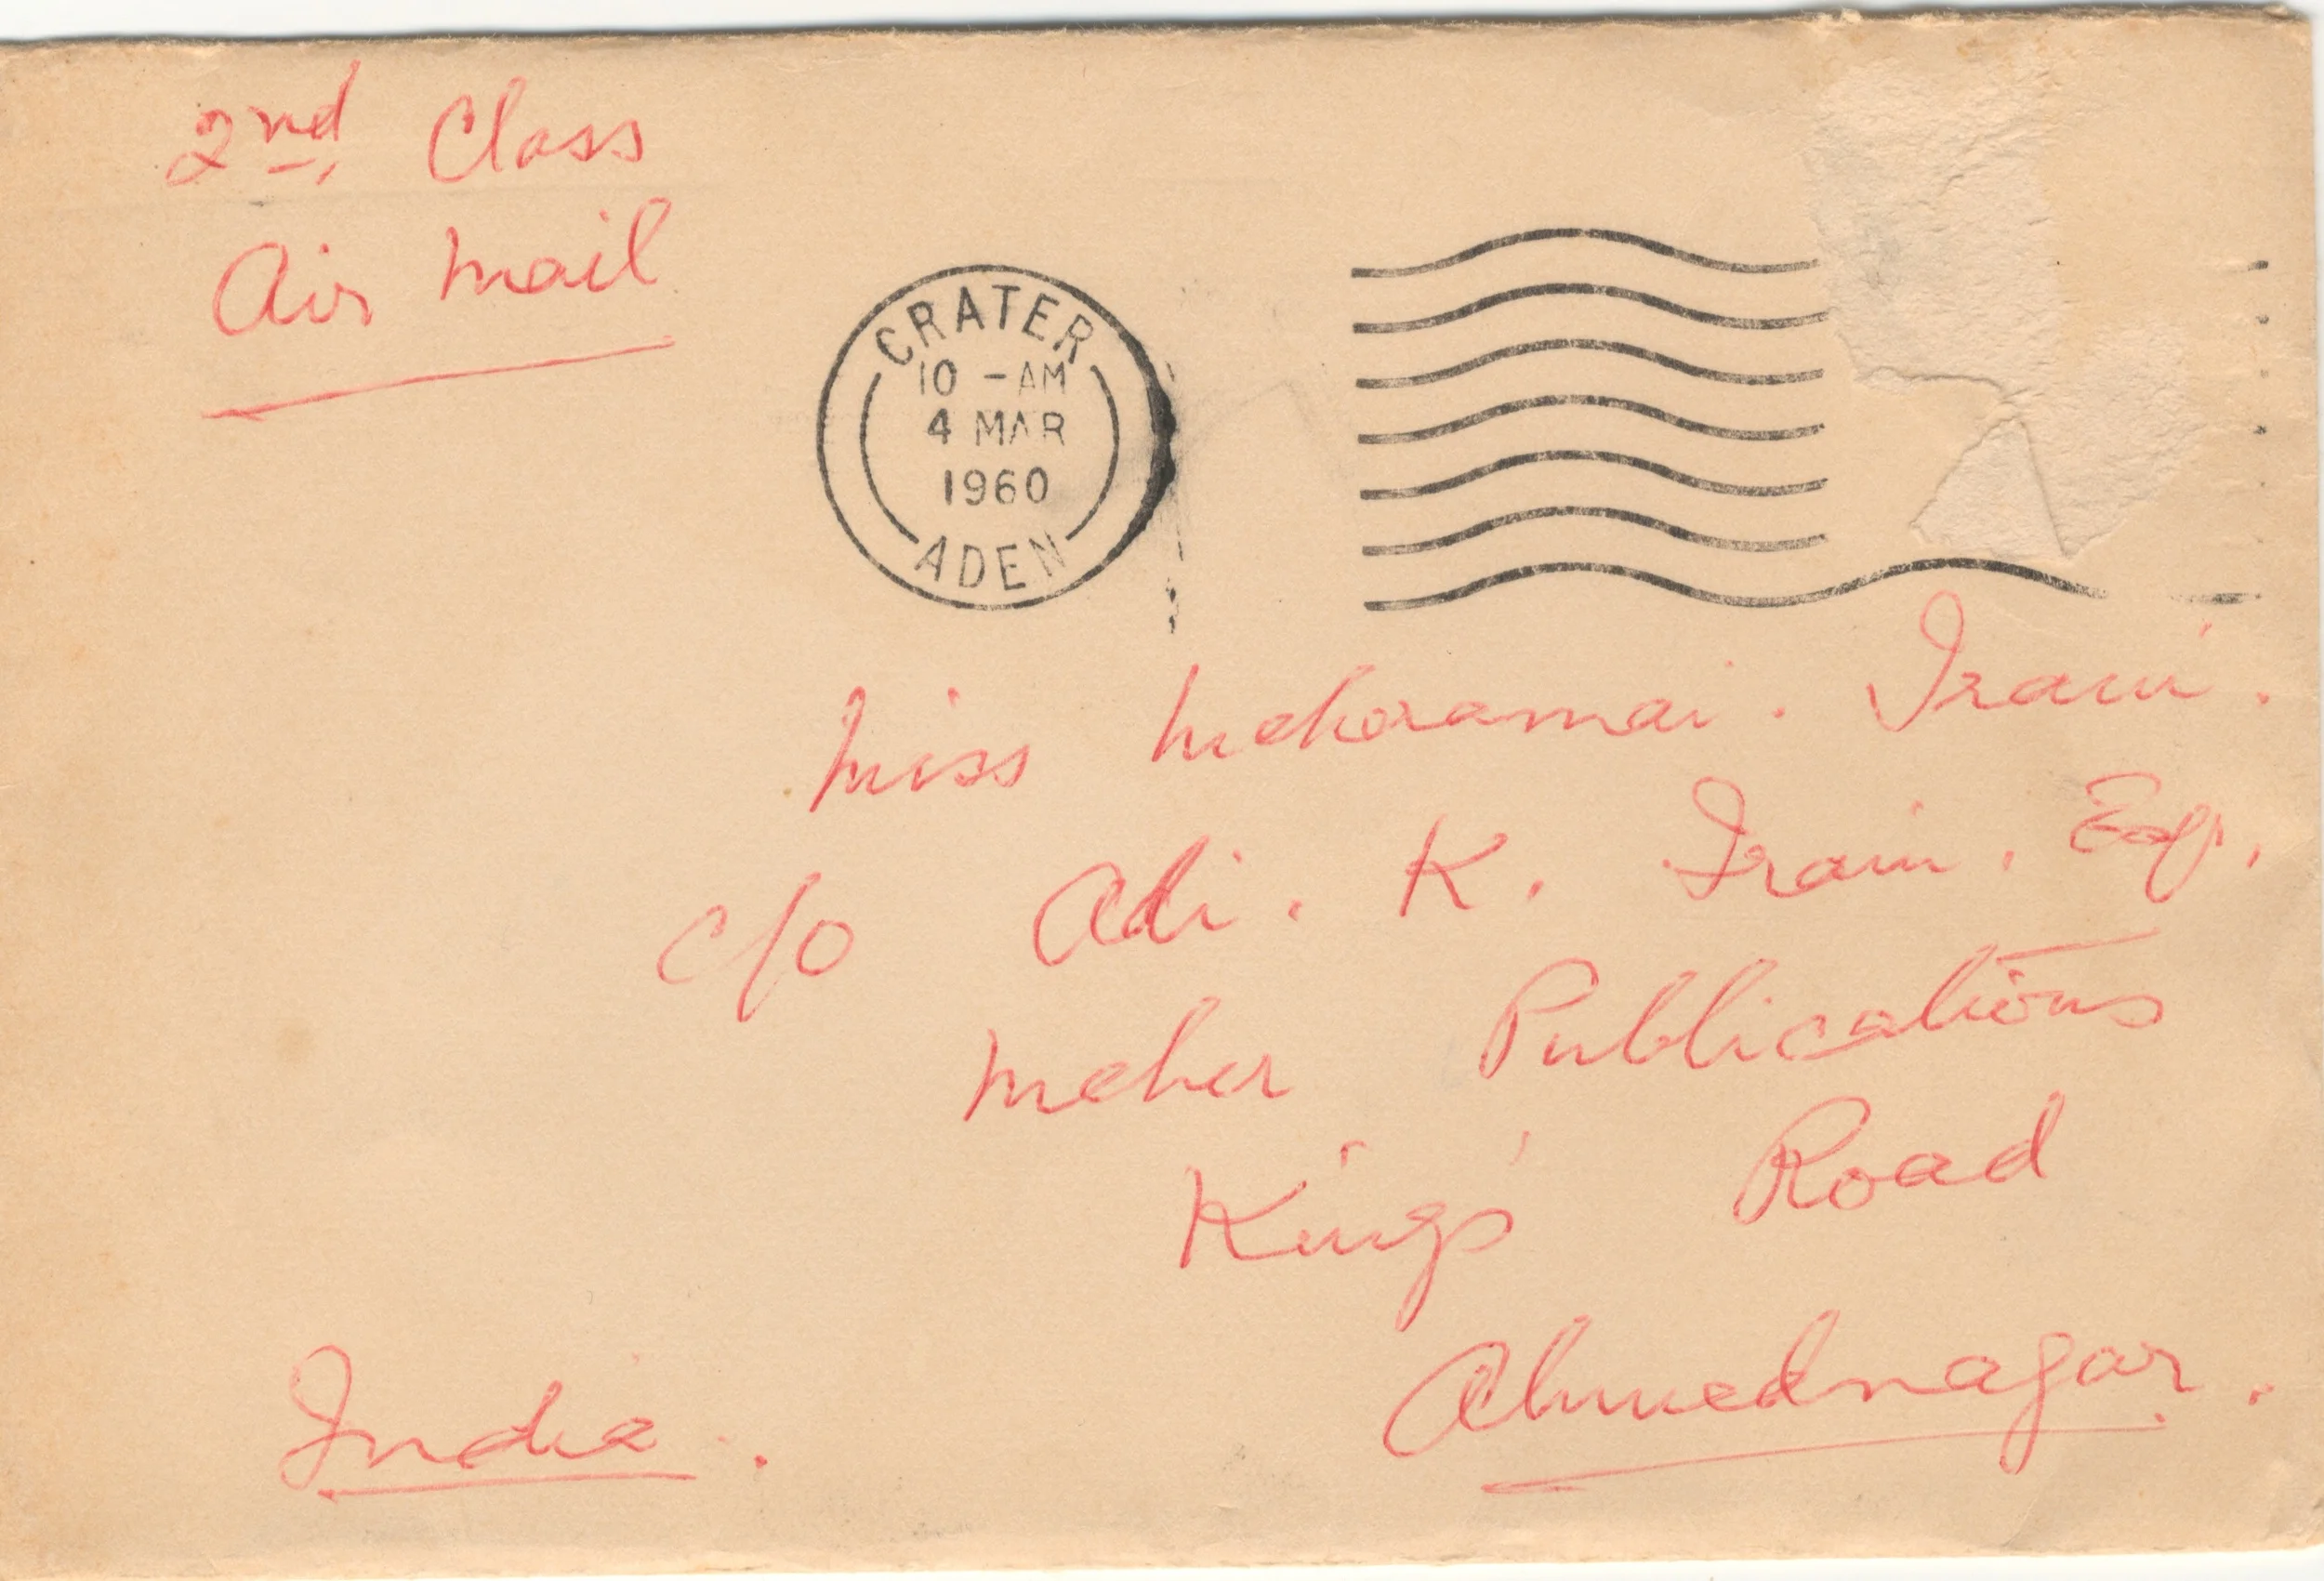 2nd Class
Air Mail
CRATER
10 - AM
4 MAR
1960
ADEN
Miss Meheramai. Irani.
c/o Adi. K. Irani. Esq.
Meher Publications
King's Road
Ahmednagar.
India.